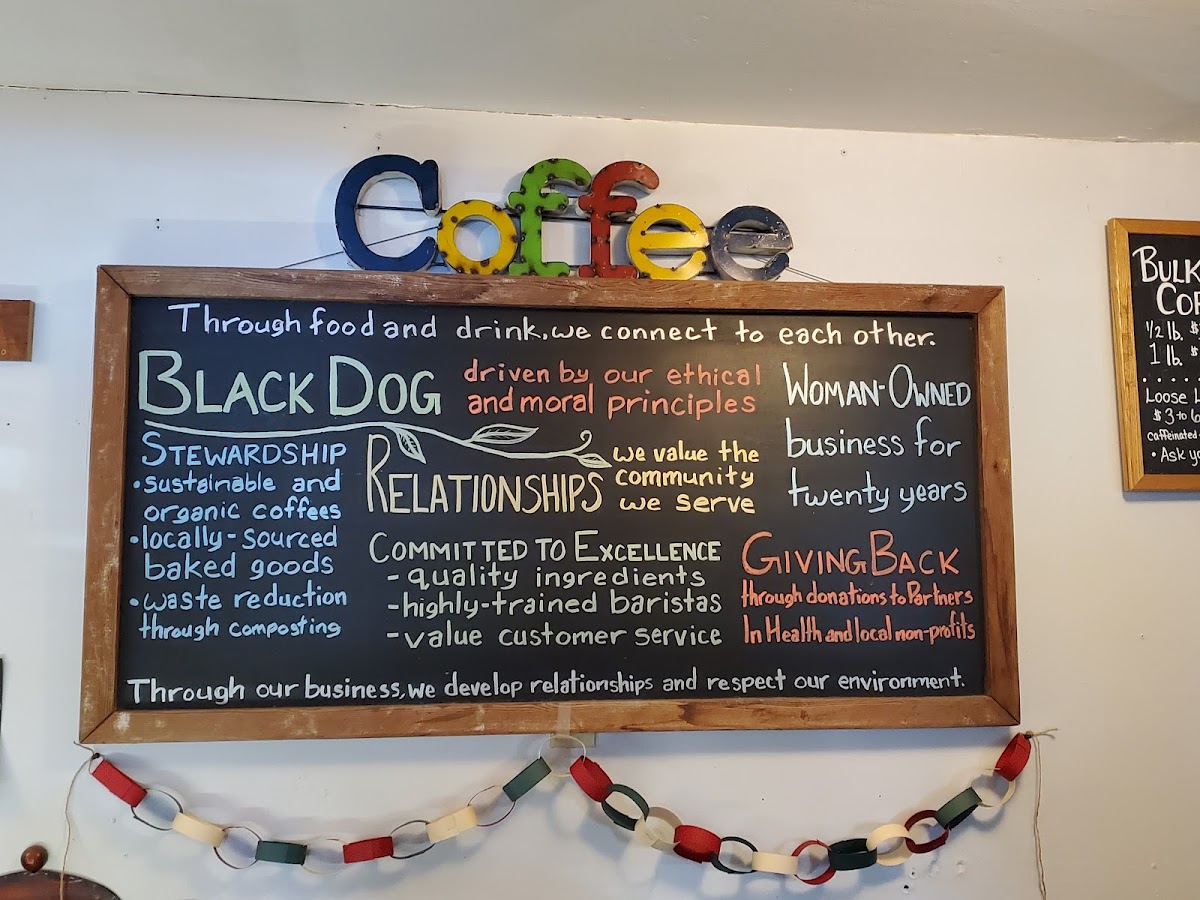 Coffee
Through food and drink, we connect to each other.
BLACK DOG
driven by our ethical
and moral principles
WOMAN-OWNED
business for
twenty years
STEWARDSHIP
• sustainable and
organic coffees
• locally-sourced
baked goods
• waste reduction
through composting
RELATIONSHIPS
we value the
community
we serve
COMMITTED TO EXCELLENCE
- quality ingredients
- highly-trained baristas
- value customer service
GIVING BACK
through donations to Partners
In Health and local non-profits
Through our business, we develop relationships and respect our environment.
BULK
1/2 lb. $
1 lb. $
Loose
$3 to 6
caffeinated
• Ask